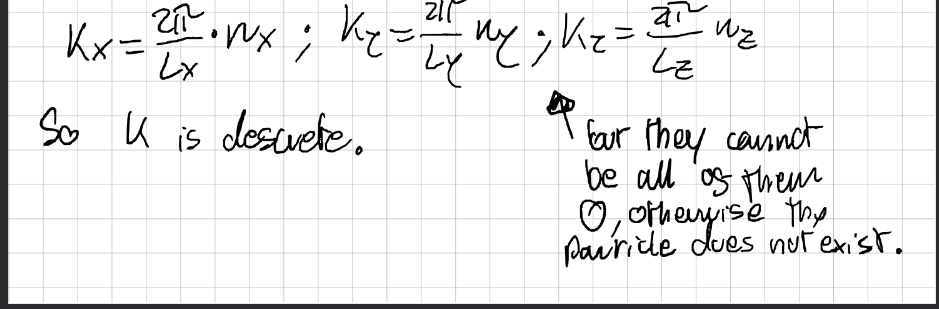 Kx = 2π/Lx · nx ; Ky = 2π/Ly ny ; Kz = 2π/Lz nz
So K is descrete.
but they cannot
be all of them
0, otherwise the
particle does not exist.